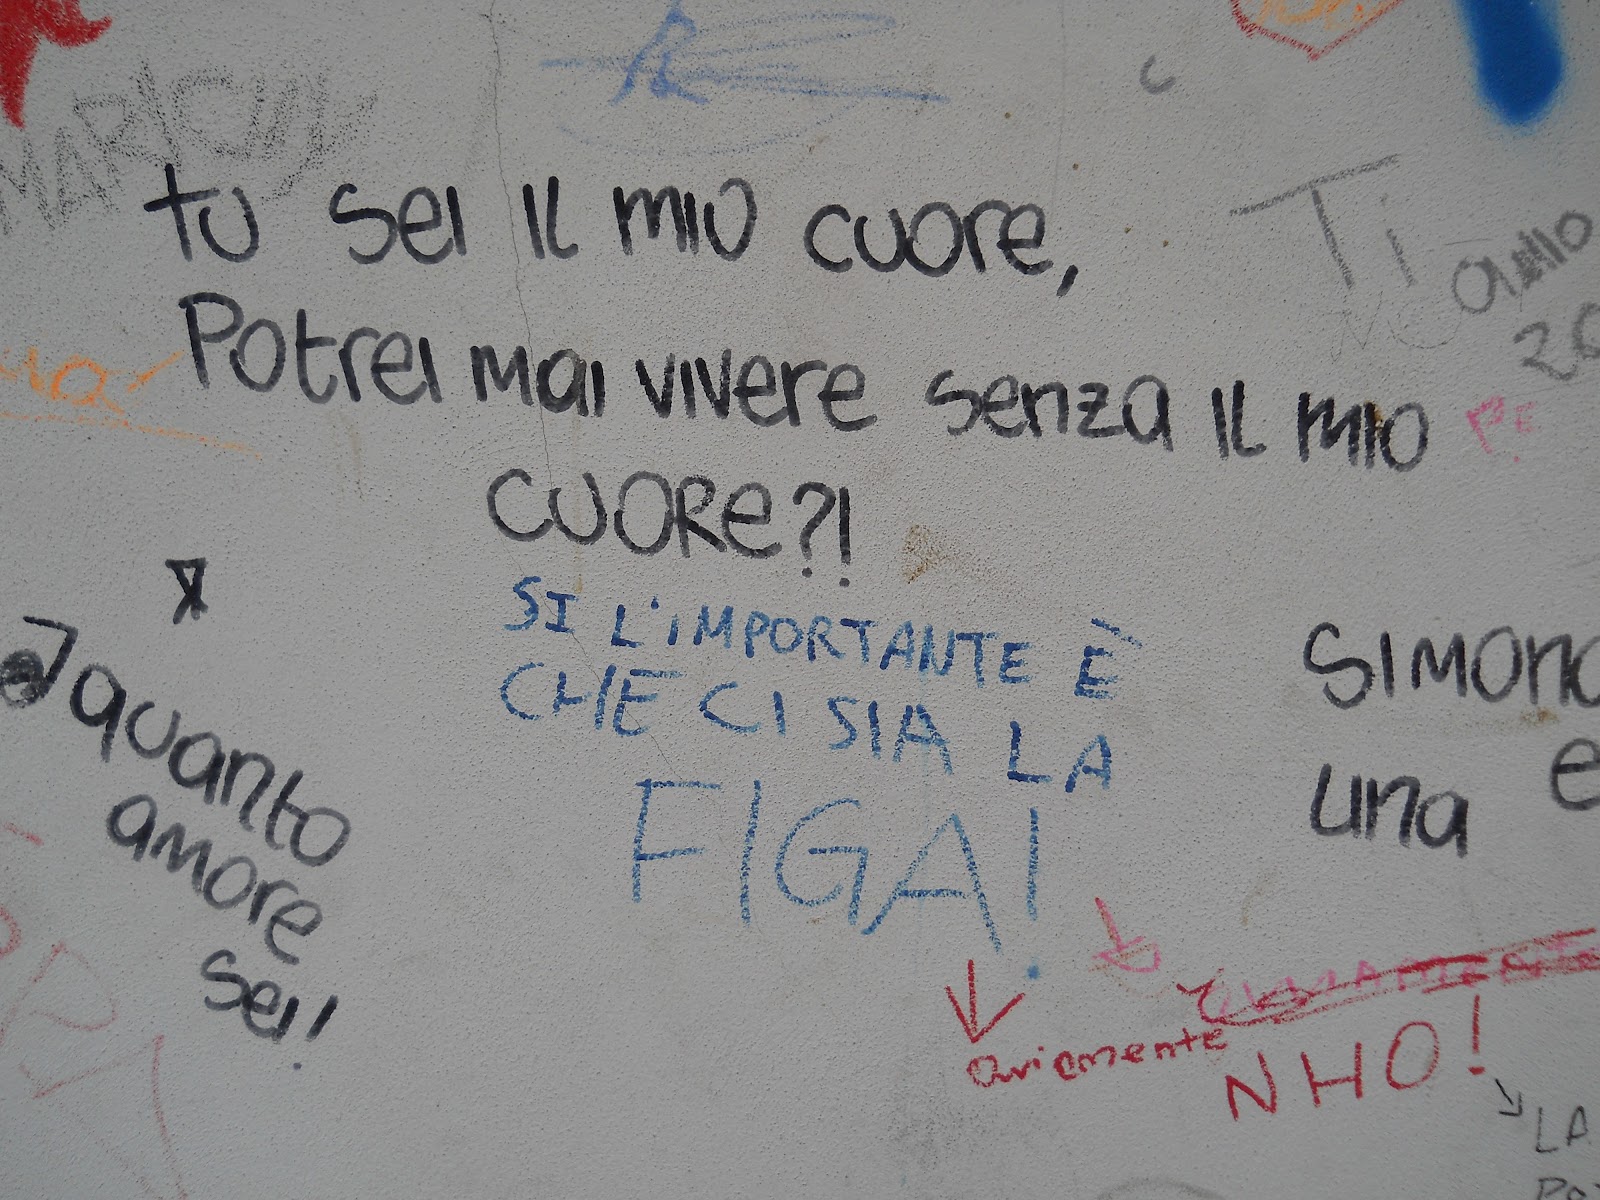 tu sei il mio cuore,
Potrei mai vivere senza il mio
CUORe?!
SI L'IMPORTANTE È
CHE CI SIA LA
FIGA!
Ti amo
quanto
amore
sei!
Simon
e
una
oviamente
NHO!
LA